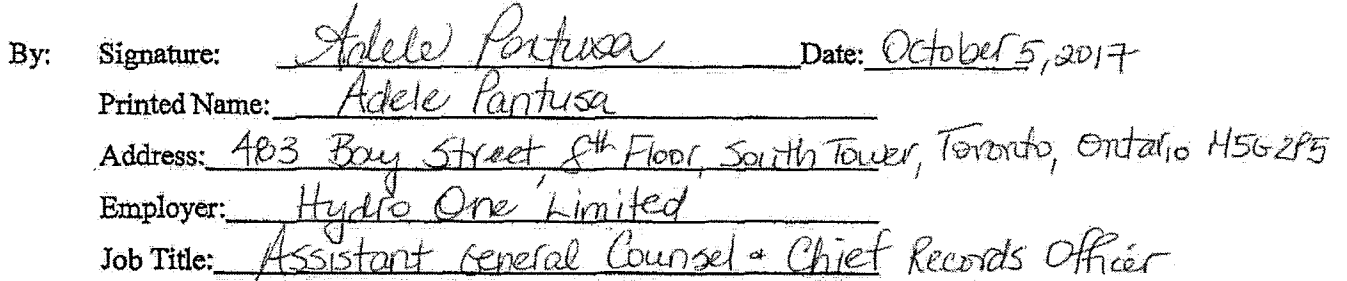 By: Signature: Adele Pantusa Date: October 5, 2017
Printed Name: Adele Pantusa
Address: 483 Bay Street, 8th Floor, South Tower, Toronto, Ontario M5G2P5
Employer: Hydro One Limited
Job Title: Assistant General Counsel & Chief Records Officer